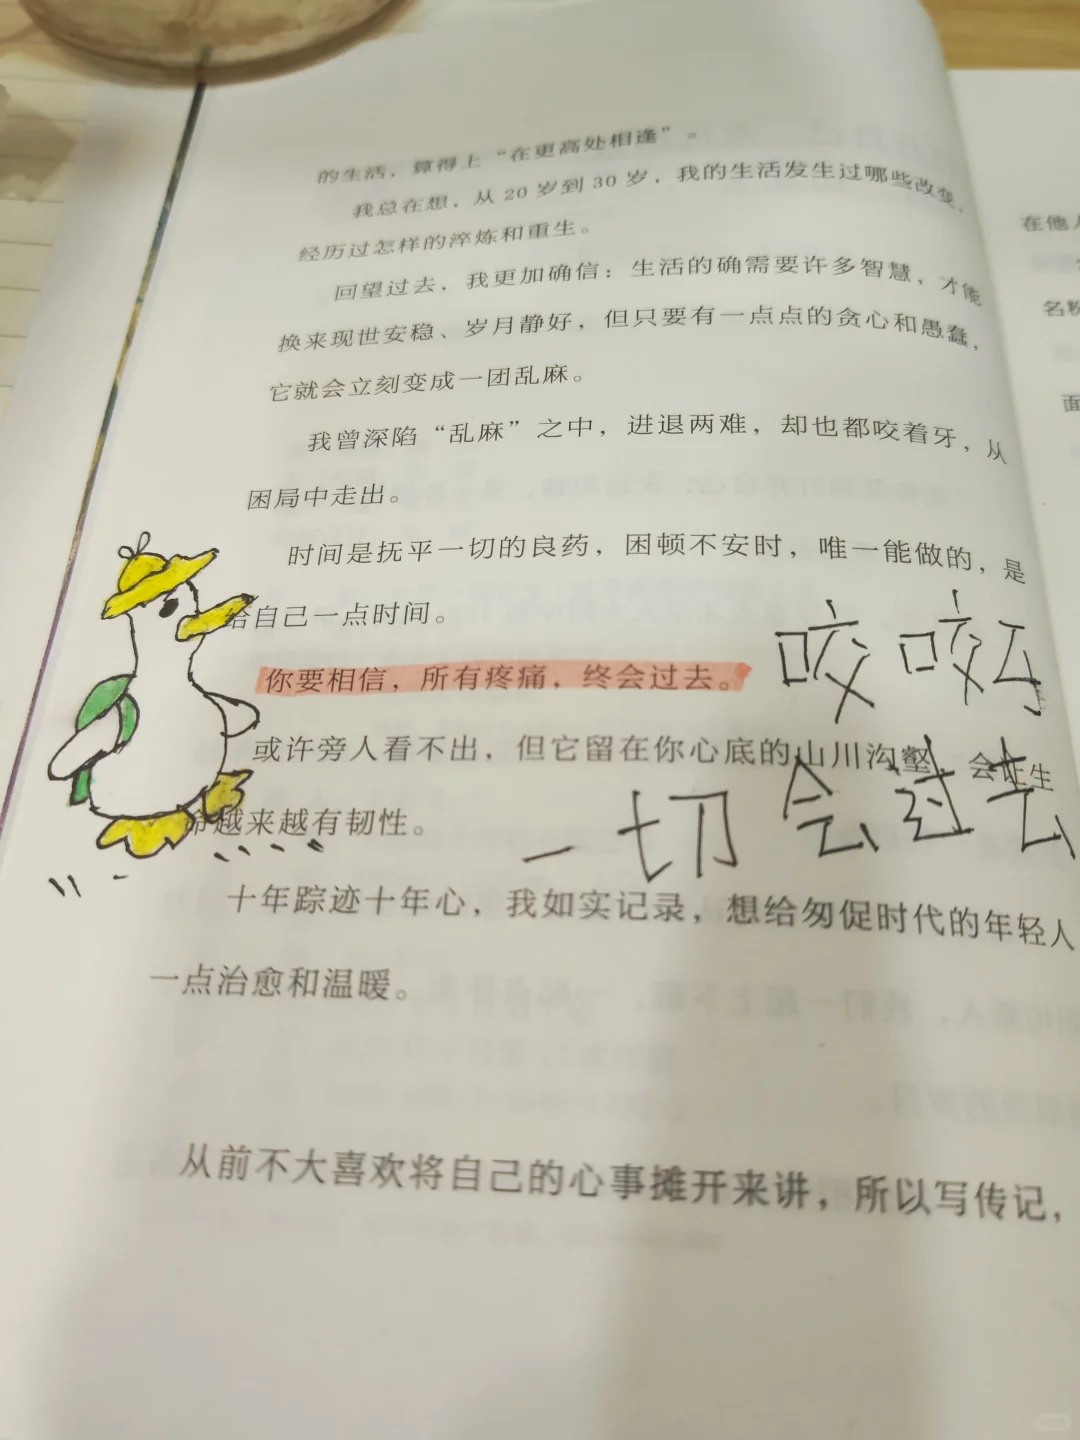 的生活，算得上“在更高处相逢”。
我总在想，从20岁到30岁，我的生活发生过哪些改变，
经历过怎样的淬炼和重生。
回望过去，我更加确信：生活的确需要许多智慧，才能
换来现世安稳、岁月静好，但只要有一点点的贪心和愚蠢，
它就会立刻变成一团乱麻。
我曾深陷“乱麻”之中，进退两难，却也都咬着牙，从
困局中走出。
时间是抚平一切的良药，困顿不安时，唯一能做的，是
给自己一点时间。
咬咬牙
你要相信，所有疼痛，终会过去。
或许旁人看不出，但它留在你心底的山川沟壑，会让生
命越来越有韧性。
一切会过去
十年踪迹十年心，我如实记录，想给匆促时代的年轻人
一点治愈和温暖。
从前不大喜欢将自己的心事摊开来讲，所以写传记，
在他人
名称
面